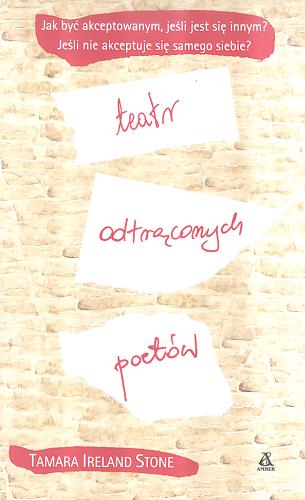 Jak być akceptowanym, jeśli jest się innym?
Jeśli nie akceptuje się samego siebie?
teatr
odtrąconych
poetów
AMBER
TAMARA IRELAND STONE